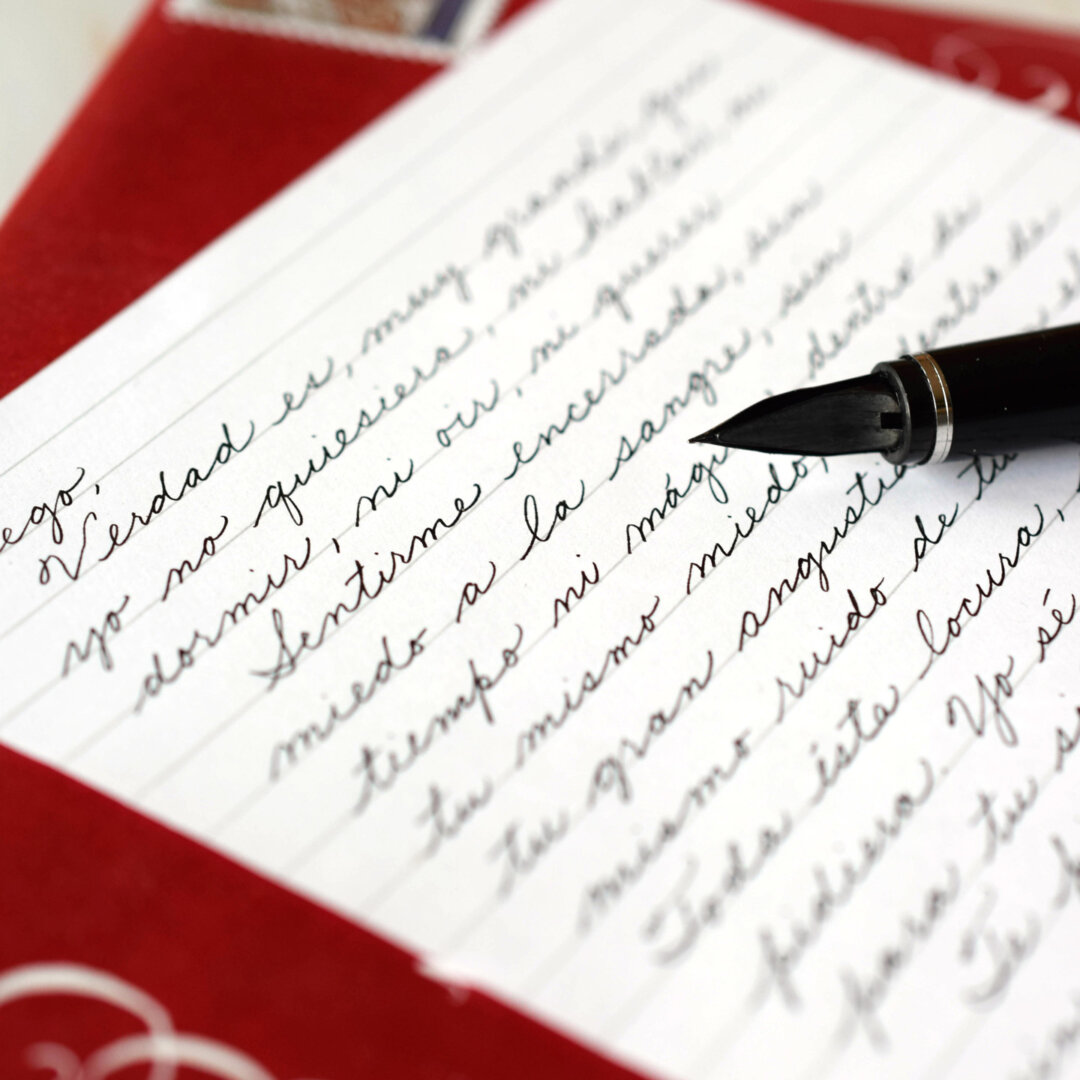 ego,
Verdad es, muy grande que
yo no quiesiera, ni hablar, ni
dormir, ni oir, ni querer
Sentirme encerrada, sin
miedo a la sangre, sin
tiempo ni mági dentro de
tu mismo miedo, dentro de
tu gran angustia el
mismo ruido de tu
Toda ésta locura,
pediera. Yo sé
para tu
Te